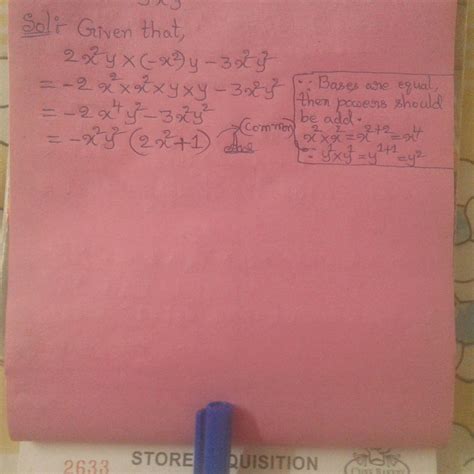 Sol: Given that,
2x²y×(-x²)y-3x²y²
= -2x²×x²×y×y-3x²y²
= -2x⁴y²-3x²y²
= -x²y²(2x²+1)
(Common)
∵ Bases are equal,
then powers should
be add.
x²×x²=x²⁺²=x⁴
∵ y¹×y¹=y¹⁺¹=y²
2633
STORE
QUISITION